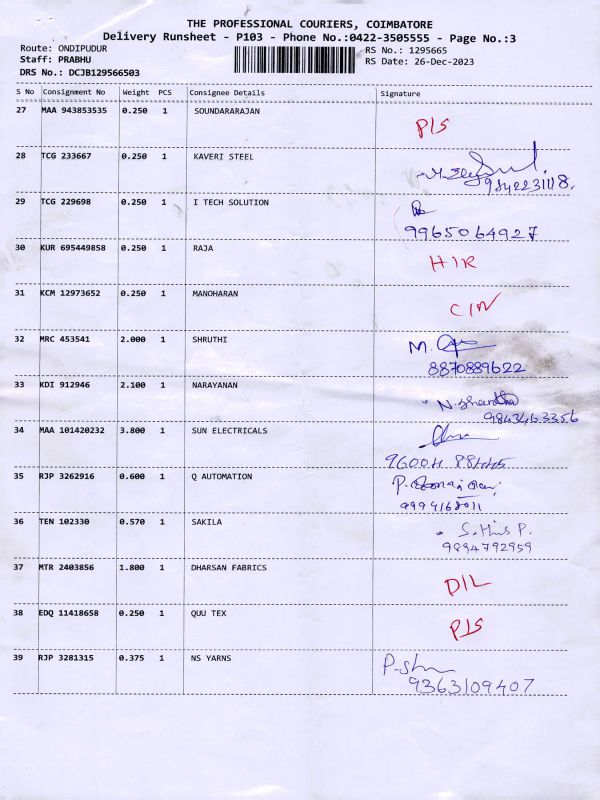 THE PROFESSIONAL COURIERS, COIMBATORE
Delivery Runsheet - P103 - Phone No.:0422-3505555 - Page No.:3
Route: ONDIPUDUR
RS No.: 1295665
Staff: PRABHU
RS Date: 26-Dec-2023
DRS No.: DCJB129566503
S No Consignment No Weight PCS Consignee Details Signature
27 MAA 943853535 0.250 1 SOUNDARARAJAN
P/S
28 TCG 233667 0.250 1 KAVERI STEEL
9842231118.
29 TCG 229698 0.250 1 I TECH SOLUTION
9965064927
30 KUR 695449858 0.250 1 RAJA
H/R
31 KCM 12973652 0.250 1 MANOHARAN
C/N
32 MRC 453541 2.000 1 SHRUTHI
M.
8870889622
33 KDI 912946 2.100 1 NARAYANAN
9843463356
34 MAA 101420232 3.800 1 SUN ELECTRICALS
35 RJP 3262916 0.600 1 Q AUTOMATION
9994168011
36 TEN 102330 0.570 1 SAKILA
9894792959
37 MTR 2403856 1.800 1 DHARSAN FABRICS
D/L
38 EDQ 11418658 0.250 1 QUU TEX
P/S
39 RJP 3281315 0.375 1 NS YARNS
9363109407